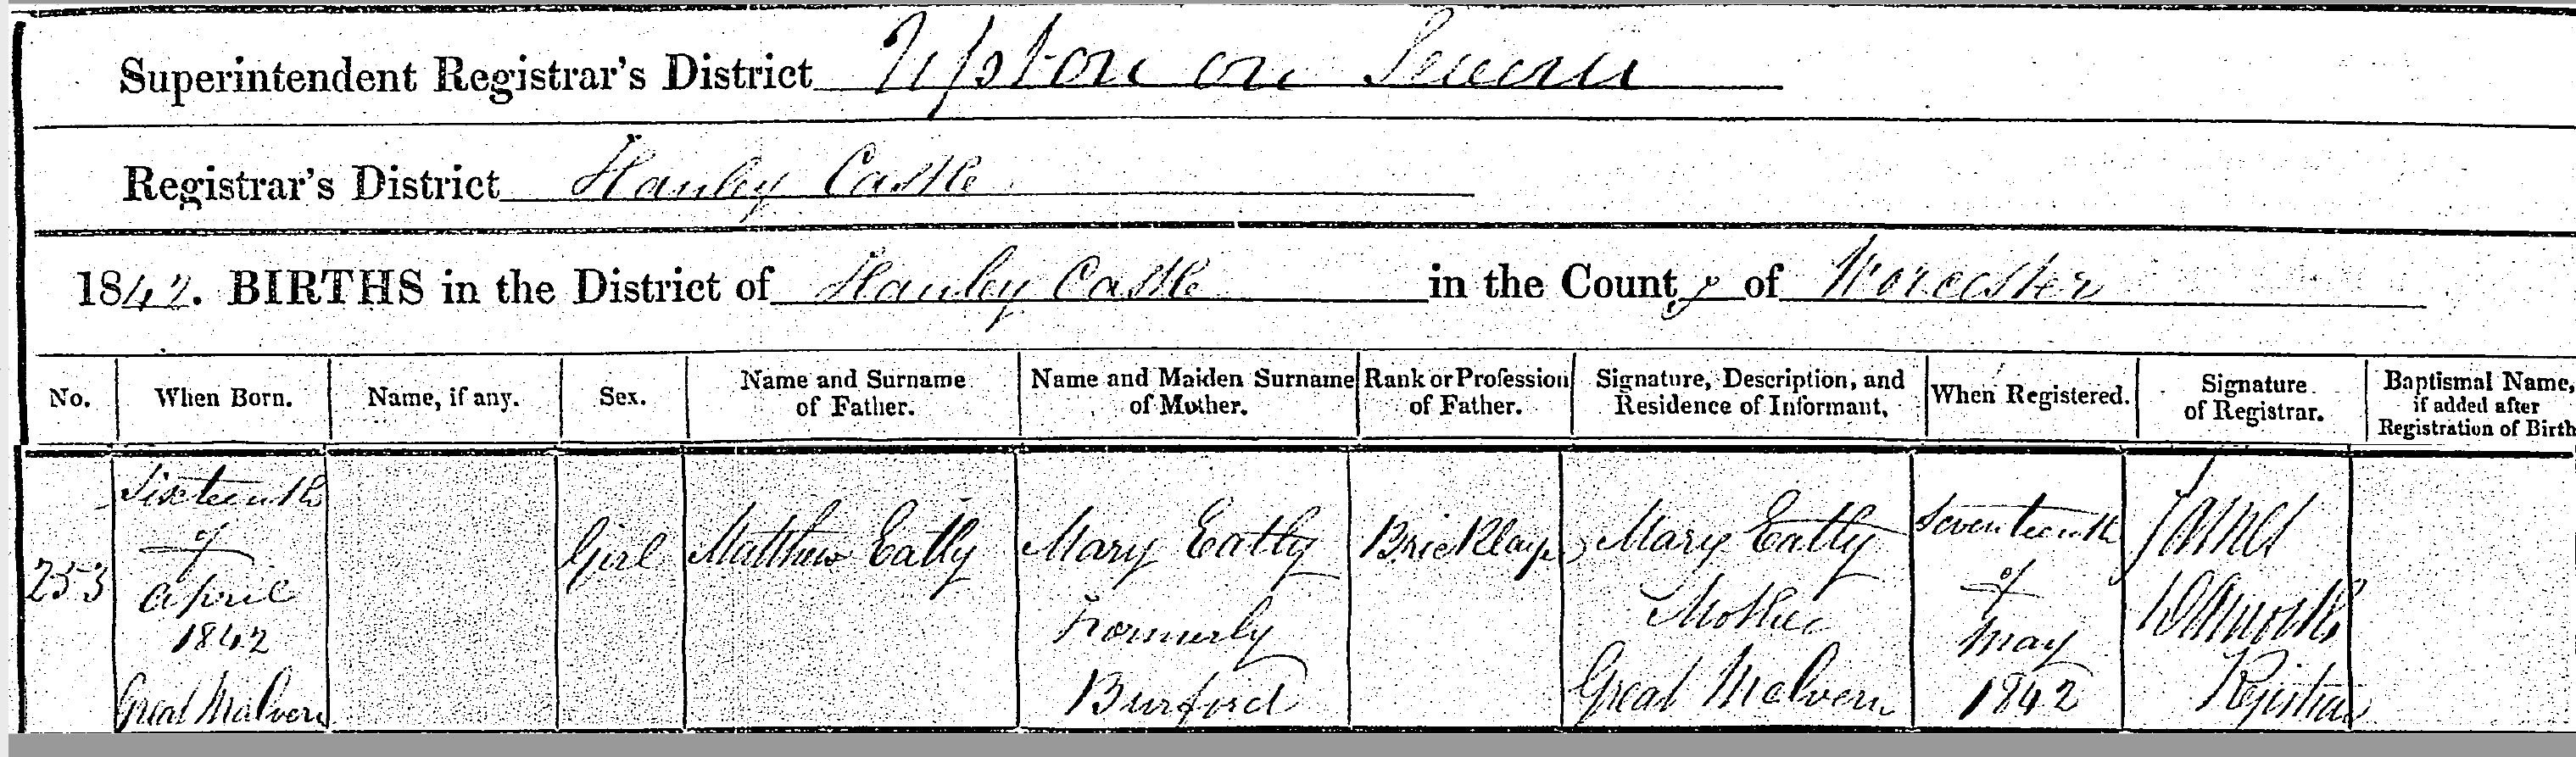 Superintendent Registrar's District Upton on Severn
Registrar's District Hanley Castle
1842. BIRTHS in the District of Hanley Castle in the County of Worcester
No. When Born. Name, if any. Sex. Name and Surname of Father. Name and Maiden Surname of Mother. Rank or Profession of Father. Signature, Description, and Residence of Informant. When Registered. Signature of Registrar. Baptismal Name, if added after Registration of Birth
253
Sixteenth
of
April
1842
Great Malvern
Girl
Matthew Eatly
Mary Eatly
Formerly
Burford
Bricklayer
Mary Eatly
Mother
Great Malvern
Seventeenth
of
May
1842
James
Registrar